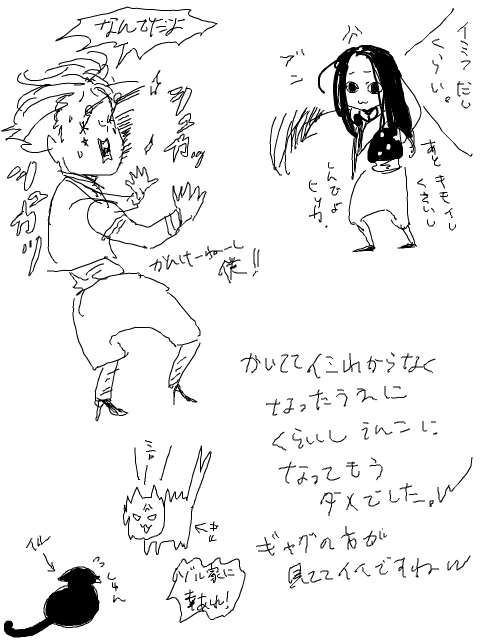 なんでだよ
イミフだし
くらい。
ブン
あと キモイし
くさいし
しんでよ
ヒソカ。
かんけーねーし
僕!!
かいててイミわからなく
なったうえに
くらいし えんこに
なってもう
ダメでした。w
ギャグの方が
見ててイイですねw
ミャ
ゾル家に
幸あれ!
イル
っしゅん